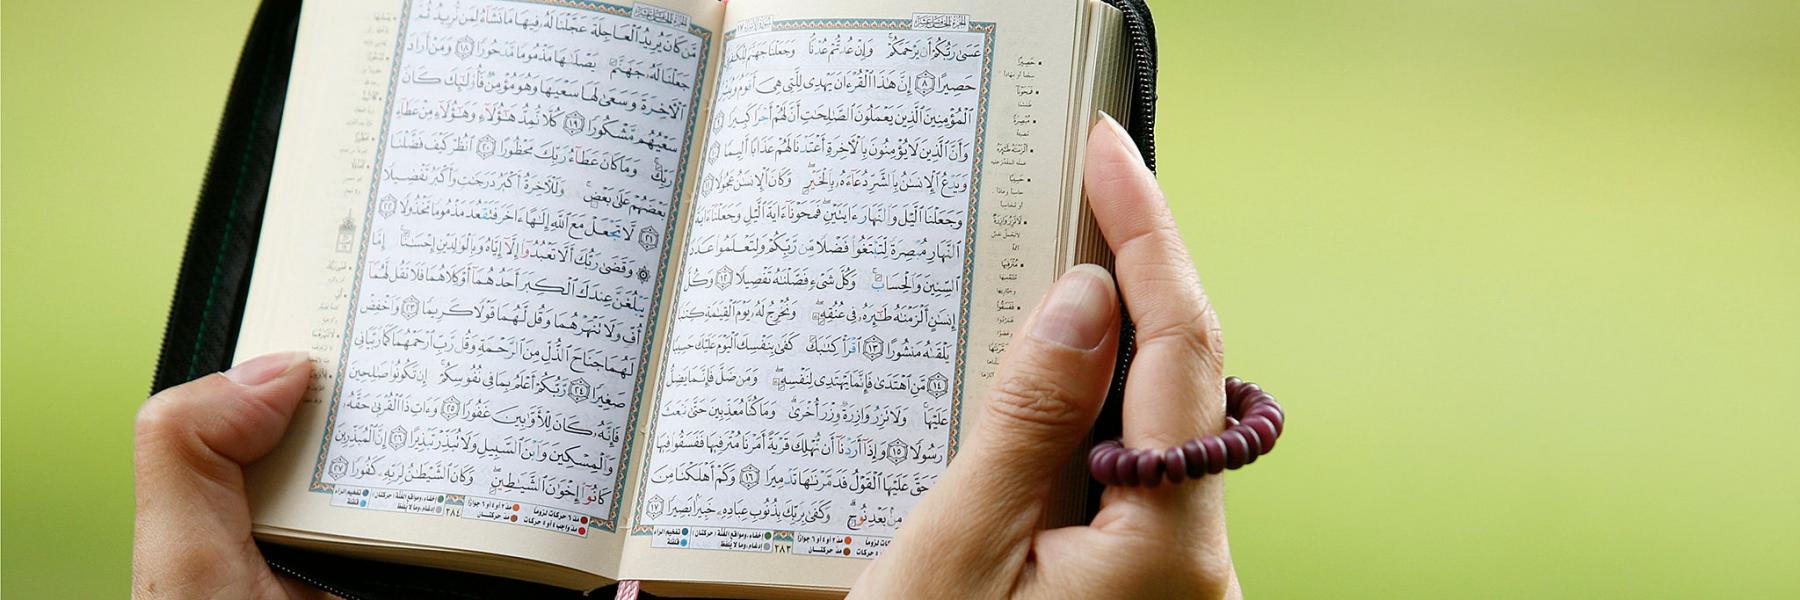 الجزء الخامس عشر
عَسَىٰ رَبُّكُمْ أَن يَرْحَمَكُمْ ۚ وَإِنْ عُدتُّمْ عُدْنَا ۘ وَجَعَلْنَا جَهَنَّمَ
حَصِيرًا ٨ إِنَّ هَٰذَا ٱلْقُرْءَانَ يَهْدِى لِلَّتِى هِىَ أَقْوَمُ
ٱلْمُؤْمِنِينَ ٱلَّذِينَ يَعْمَلُونَ ٱلصَّٰلِحَٰتِ أَنَّ لَهُمْ أَجْرًا كَبِيرًا
وَأَنَّ ٱلَّذِينَ لَا يُؤْمِنُونَ بِٱلْءَاخِرَةِ أَعْتَدْنَا لَهُمْ عَذَابًا أَلِيمًا
وَيَدْعُ ٱلْإِنسَٰنُ بِٱلشَّرِّ دُعَآءَهُۥ بِٱلْخَيْرِ ۖ وَكَانَ ٱلْإِنسَٰنُ عَجُولًا
وَجَعَلْنَا ٱلَّيْلَ وَٱلنَّهَارَ ءَايَتَيْنِ ۖ فَمَحَوْنَآ ءَايَةَ ٱلَّيْلِ وَجَعَلْنَآ ءَايَةَ
ٱلنَّهَارِ مُبْصِرَةً لِّتَبْتَغُوا۟ فَضْلًا مِّن رَّبِّكُمْ وَلِتَعْلَمُوا۟ عَدَدَ
ٱلسِّنِينَ وَٱلْحِسَابَ ۚ وَكُلَّ شَىْءٍ فَصَّلْنَٰهُ تَفْصِيلًا ١٢ وَكُلَّ
إِنسَٰنٍ أَلْزَمْنَٰهُ طَٰٓئِرَهُۥ فِى عُنُقِهِۦ ۖ وَنُخْرِجُ لَهُۥ يَوْمَ ٱلْقِيَٰمَةِ كِتَٰبًا
يَلْقَىٰهُ مَنشُورًا ١٣ ٱقْرَأْ كِتَٰبَكَ كَفَىٰ بِنَفْسِكَ ٱلْيَوْمَ عَلَيْكَ حَسِيبًا
١٤ مَّنِ ٱهْتَدَىٰ فَإِنَّمَا يَهْتَدِى لِنَفْسِهِۦ ۖ وَمَن ضَلَّ فَإِنَّمَا يَضِلُّ
عَلَيْهَا ۚ وَلَا تَزِرُ وَازِرَةٌ وِزْرَ أُخْرَىٰ ۗ وَمَا كُنَّا مُعَذِّبِينَ حَتَّىٰ نَبْعَثَ
رَسُولًا ١٥ وَإِذَآ أَرَدْنَآ أَن نُّهْلِكَ قَرْيَةً أَمَرْنَا مُتْرَفِيهَا فَفَسَقُوا۟ فِيهَا
فَحَقَّ عَلَيْهَا ٱلْقَوْلُ فَدَمَّرْنَٰهَا تَدْمِيرًا ١٦ وَكَمْ أَهْلَكْنَا مِنَ
مِنۢ بَعْدِ نُوحٍ ۗ وَكَفَىٰ بِرَبِّكَ بِذُنُوبِ عِبَادِهِۦ خَبِيرًۢا بَصِيرًا ١٧
٢٨٣
الجزء الخامس عشر
مَّن كَانَ يُرِيدُ ٱلْعَاجِلَةَ عَجَّلْنَا لَهُۥ فِيهَا مَا نَشَآءُ لِمَن نُّرِيدُ ثُمَّ
جَعَلْنَا لَهُۥ جَهَنَّمَ يَصْلَىٰهَا مَذْمُومًا مَّدْحُورًا ١٨ وَمَنْ أَرَادَ
ٱلْءَاخِرَةَ وَسَعَىٰ لَهَا سَعْيَهَا وَهُوَ مُؤْمِنٌ فَأُو۟لَٰٓئِكَ كَانَ
سَعْيُهُم مَّشْكُورًا ١٩ كُلًّا نُّمِدُّ هَٰٓؤُلَآءِ وَهَٰٓؤُلَآءِ مِنْ عَطَآءِ
رَبِّكَ ۚ وَمَا كَانَ عَطَآءُ رَبِّكَ مَحْظُورًا ٢٠ ٱنظُرْ كَيْفَ فَضَّلْنَا
بَعْضَهُمْ عَلَىٰ بَعْضٍ ۚ وَلَلْءَاخِرَةُ أَكْبَرُ دَرَجَٰتٍ وَأَكْبَرُ تَفْضِيلًا
٢١ لَّا تَجْعَلْ مَعَ ٱللَّهِ إِلَٰهًا ءَاخَرَ فَتَقْعُدَ مَذْمُومًا مَّخْذُولًا ٢٢
۞ وَقَضَىٰ رَبُّكَ أَلَّا تَعْبُدُوٓا۟ إِلَّآ إِيَّاهُ وَبِٱلْوَٰلِدَيْنِ إِحْسَٰنًا ۚ إِمَّا
يَبْلُغَنَّ عِندَكَ ٱلْكِبَرَ أَحَدُهُمَآ أَوْ كِلَاهُمَا فَلَا تَقُل لَّهُمَآ
أُفٍّ وَلَا تَنْهَرْهُمَا وَقُل لَّهُمَا قَوْلًا كَرِيمًا ٢٣ وَٱخْفِضْ
لَهُمَا جَنَاحَ ٱلذُّلِّ مِنَ ٱلرَّحْمَةِ وَقُل رَّبِّ ٱرْحَمْهُمَا كَمَا رَبَّيَانِى
صَغِيرًا ٢٤ رَّبُّكُمْ أَعْلَمُ بِمَا فِى نُفُوسِكُمْ ۚ إِن تَكُونُوا۟ صَٰلِحِينَ
فَإِنَّهُۥ كَانَ لِلْأَوَّٰبِينَ غَفُورًا ٢٥ وَءَاتِ ذَا ٱلْقُرْبَىٰ حَقَّهُۥ
وَٱلْمِسْكِينَ وَٱبْنَ ٱلسَّبِيلِ وَلَا تُبَذِّرْ تَبْذِيرًا ٢٦ إِنَّ ٱلْمُبَذِّرِينَ
كَانُوٓا۟ إِخْوَٰنَ ٱلشَّيَٰطِينِ ۖ وَكَانَ ٱلشَّيْطَٰنُ لِرَبِّهِۦ كَفُورًا ٢٧
مد ٦ حركات لزوما مد ٢ أو ٤ أو ٦ جوازا إخفاء، ومواقع الغنة (حركتان) تفخيم الراء
مد واجب ٤ أو ٥ حركات مد حركتان ٢٨٤ إدغام، وما لا يلفظ قلقلة